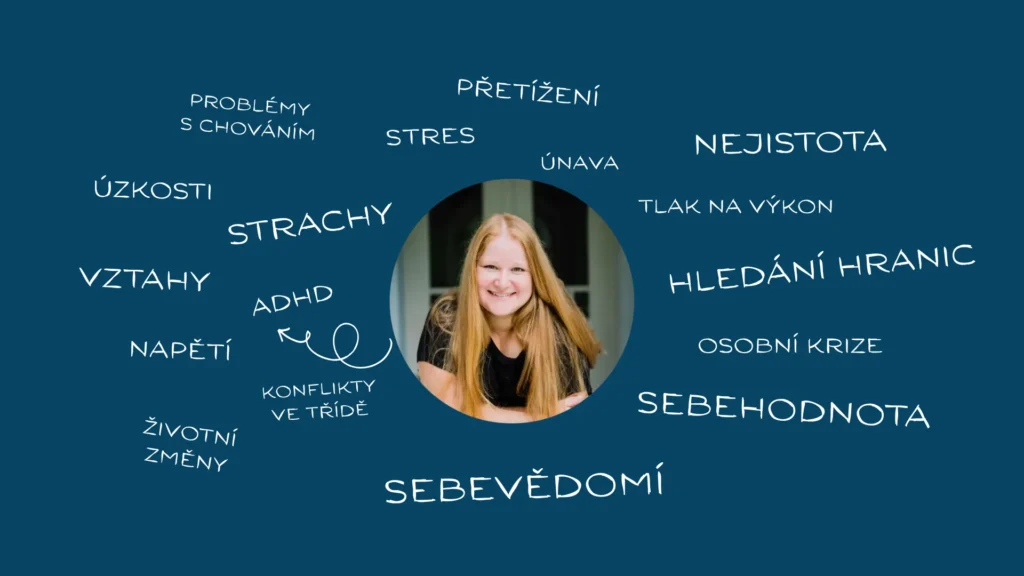 PŘETÍŽENÍ
PROBLÉMY
S CHOVÁNÍM
STRES
NEJISTOTA
ÚNAVA
ÚZKOSTI
TLAK NA VÝKON
STRACHY
HLEDÁNÍ HRANIC
VZTAHY
ADHD
NAPĚTÍ
OSOBNÍ KRIZE
KONFLIKTY
VE TŘÍDĚ
SEBEHODNOTA
ŽIVOTNÍ
ZMĚNY
SEBEVĚDOMÍ